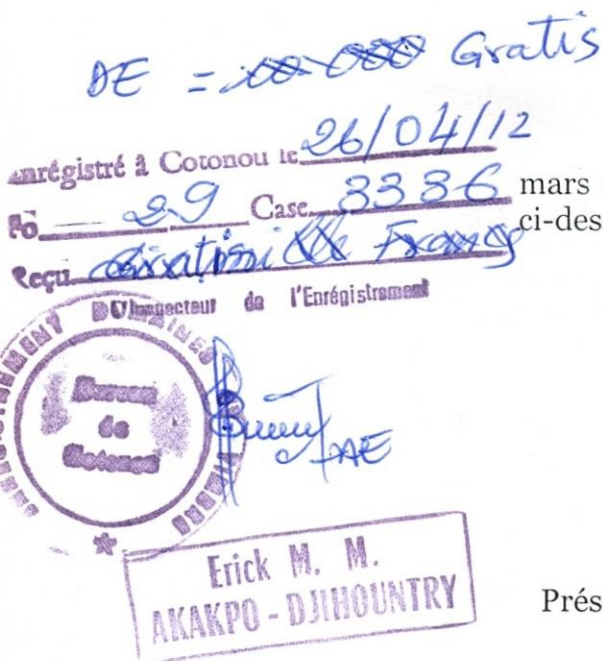 DE = 10.000 Gratis
Enrégistré à Cotonou le 26/04/12
Fo 29 Case 3336 mars
ci-des
Reçu Francs
L'Inspecteur de l'Enrégistrement
Bureau
de
Cotonou
Erick M. M.
AKAKPO - DJIHOUNTRY
Prés